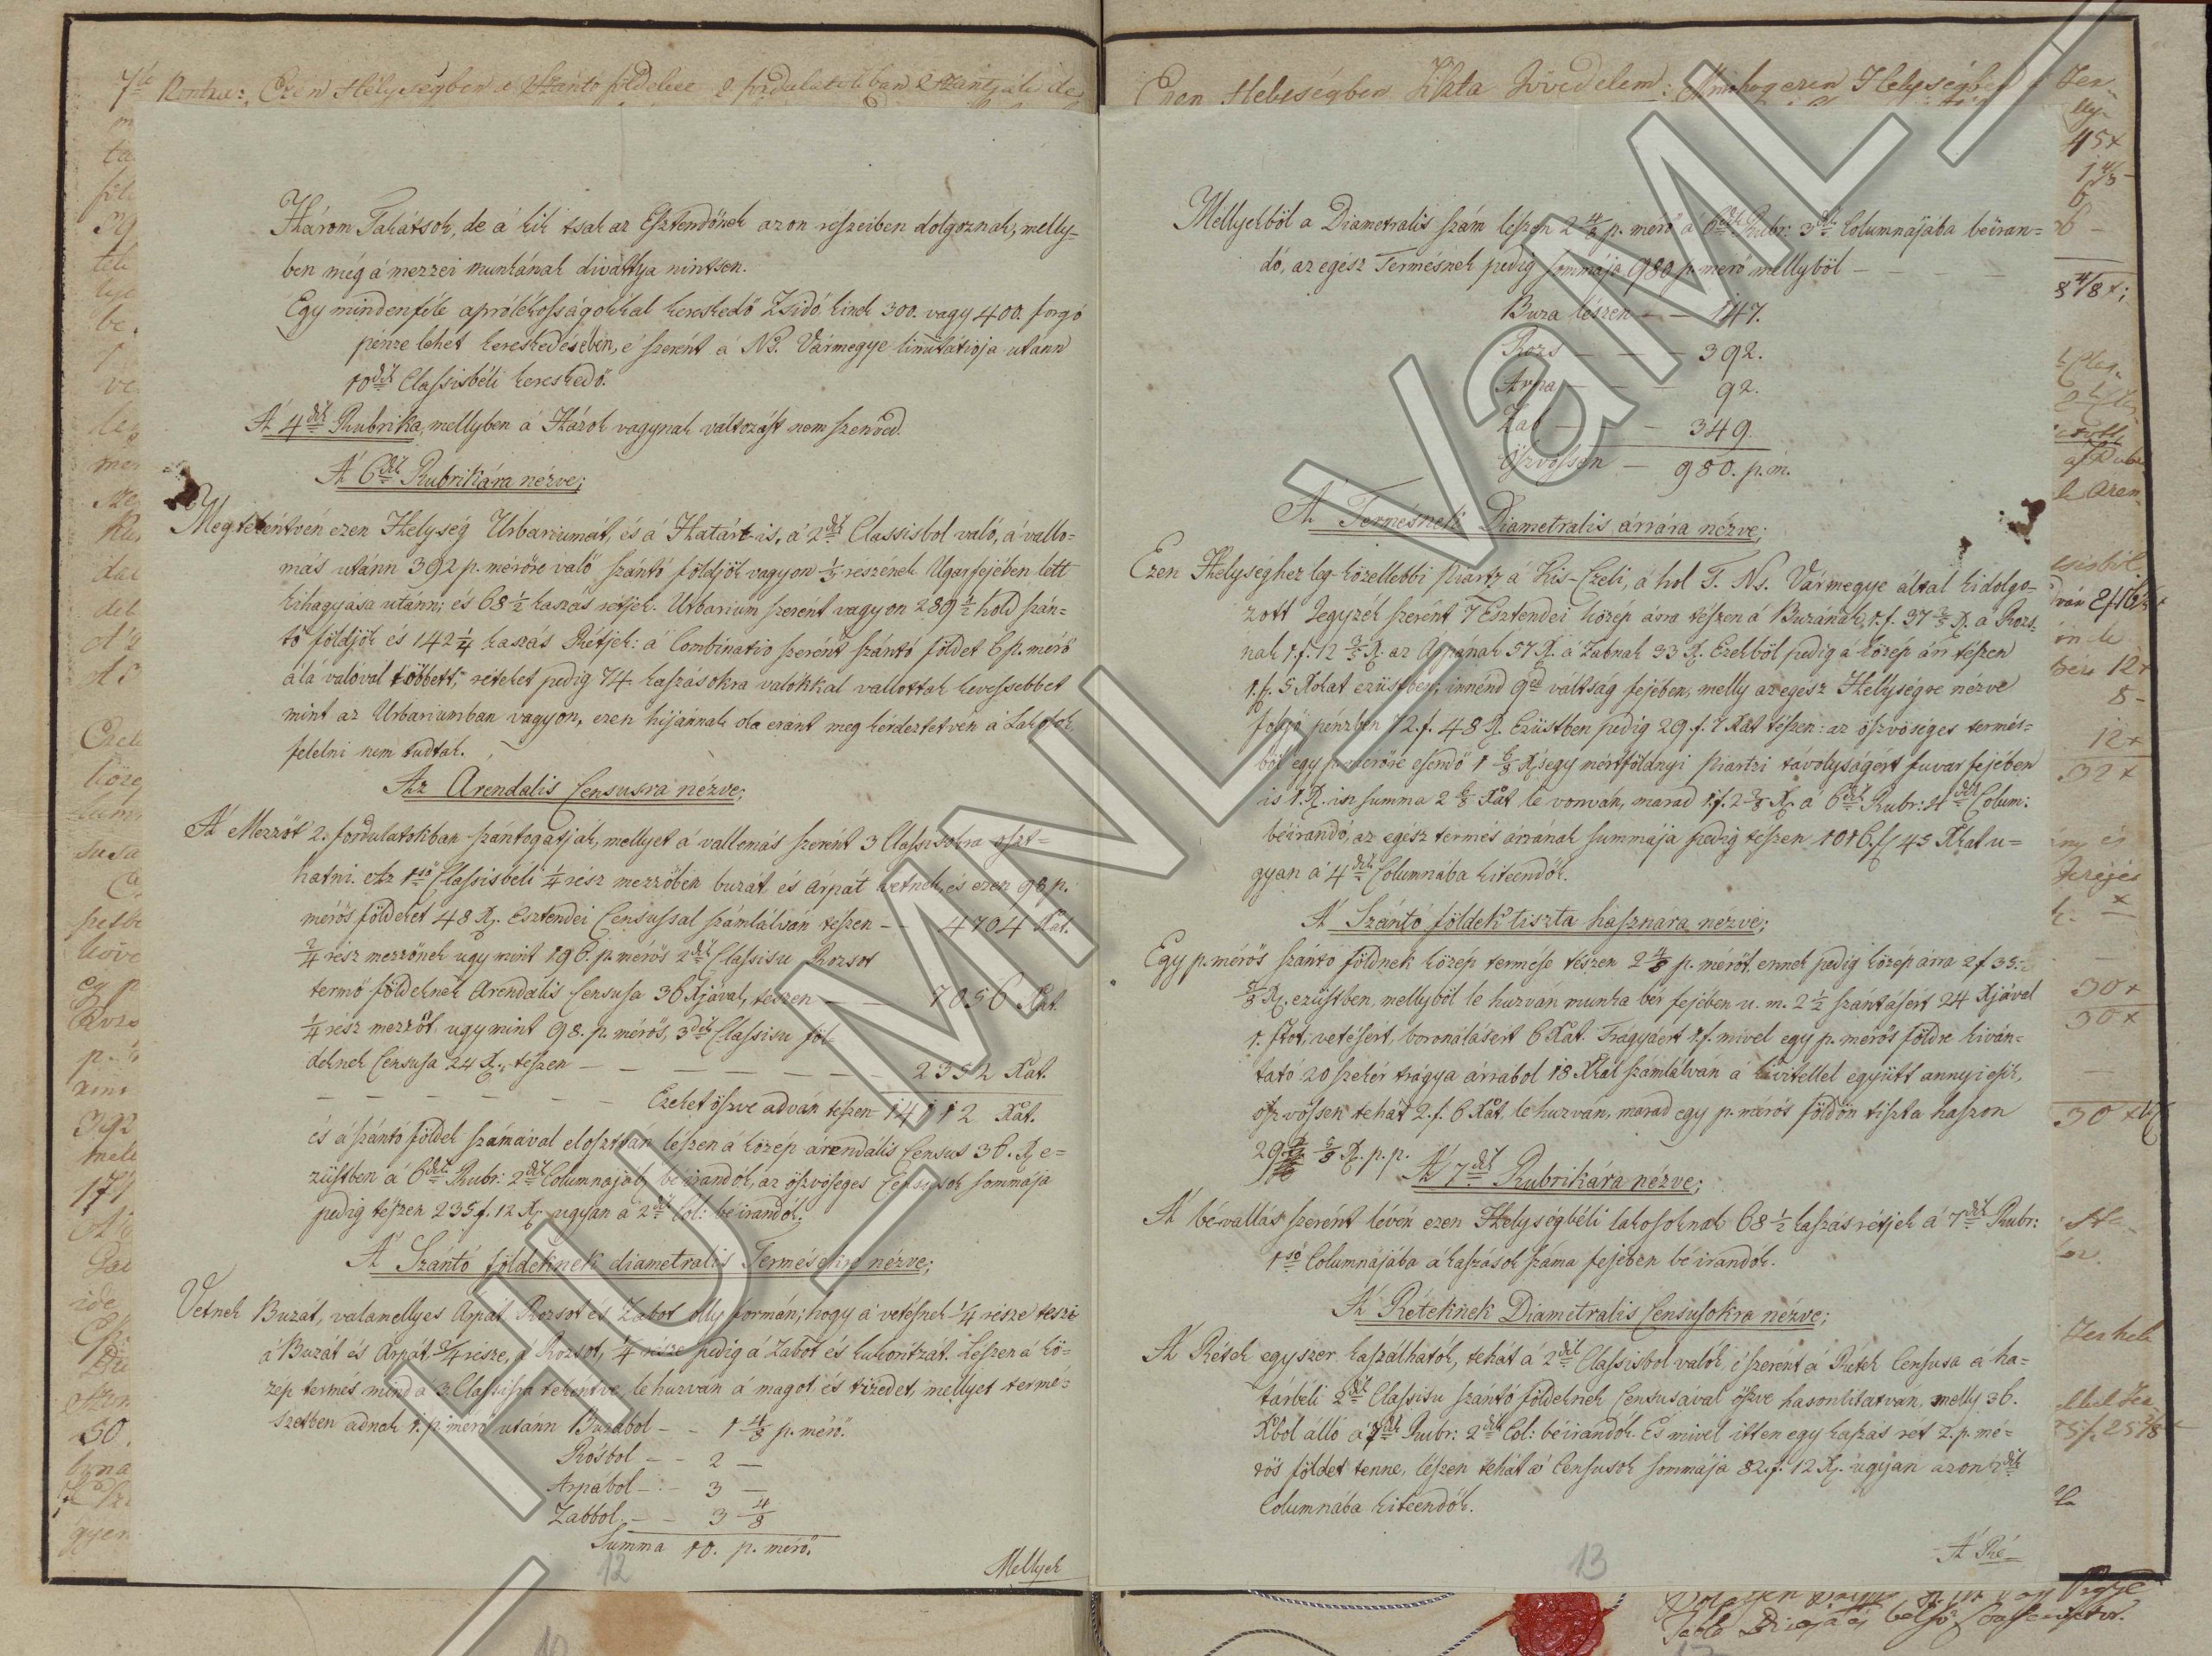 7dik Kontra: Ezen Helységben a Szántó földeket 2 fordulatokban szántják de
Három Takátsok, de á kik tsak az Esztendőnek azon részeiben dolgoznak, melly-
ben még á mezzei munkának divattya nintsen.
Egy mindenféle aprólékosságokkal kereskedő Zsidó kinek 300. vagy 400. forgó
pénze lehet kereskedésében, é szerént á Ns. Vármegye limitátioja utánn
10dik Classisbéli kereskedő.
Á 4dik Rubrika, mellyben á Házok vagynak változást nem szenved.
Á 6dik Rubrikára nézve;
Megtekéntvén ezen Helység Urbariumát, és á Határt is, á 2dik Classisbol való, á vallo-
más utánn 392 p. mérőre való szántó földjök vagyon 1/3 részének Ugar fejében lett
kihagyása utánn; és 68 1/2 kaszás rétjek. Urbarium szerént vagyon 289 1/2 hold szán-
tó földjök és 142 1/4 kaszás Rétjek: á Combinatio szerént szántó földet 6 p. mérő
álá valóval többett, réteket pedig 74 kaszásokra valókkal vallottak kevessebbet
mint az Urbariumban vagyon, ezen hijánnak oka eránt meg kérdeztetvén á Lakosok,
felelni nem tudtak.
Az Árendalis Censusra nézve;
Á Mezzőt 2. fordulatokban szántogatják, mellyet á vallomás szerént 3 Classisokra oszt-
hatni. Az 1ső Classisbéli 1/4 rész mezzőben buzát és árpát vetnek, és ezen 98 p.
mérős földeket 48 Xr. Esztendei Censussal számlálván teszen - - 4704 Xat.
2/4 rész mezzőnek ugy mint 196. p. mérős 2dik Classisu Rozsot
termő földeknek Árendalis Censusa 36 Xrjával, tészen - - 7056 Xat.
1/4 rész mezzőt, ugymint 98. p. mérős, 3dik Classisu föl-
deknek Censusa 24 Xr. tészen - - - - - - - 2352 Xat.
- - - - - Ezeket öszve adván tészen 14112 Xat.
és á szántó földek számával elosztván lészen á közép árendális Census 36. Xr e-
züstben á 6dik Rubr: 2dik Columnájáb béirandók, az öszvöséges Censusok sommája
pedig tészen 235 f. 12 Xr. ugyan á 2dik Col: béirandók.
Á Szántó földeknek diametralis Termésekre nézve;
Vetnek Buzát, valamellyes Árpát, Rozsot és Zabot olly formán; hogy á vetésnek 1/4 része teszi
á Buzát és Árpát, 2/4 része, á Rozsot, 1/4 része pedig á Zabot és kukoritzát. Lészen á kö-
zép termés mind á 3 Classisra tekintve, lehuzván á magot és tizedet, mellyet termé-
szetben adnak 1. p. mérő utánn Buzábol - - 1 4/8 p. mérő.
Rósbol - - 2 -
Árpábol - - 3 -
Zabbol - - 3 4/8
Summa 10. p. mérő.
12
Mellyek
Ezen Helységben Tiszta Jövedelem: Minthogy ezen Helységben
Mellyekböl a Diametralis szám leszen 2 4/8 p. mérő á 6dik Rubr: 3dik Columnájába béiran-
dó, az egész Termésnek pedig sommája 980 p. mérő mellyböl - - - -
Buza lészen - - 147.
Rozs - - - 392.
Árpa - - - 92.
Zab - - - 349.
Öszvössen - 980. p. m.
Á Termésnek Diametralis árrára nézve;
Ezen Helységhez leg-közellebbi Piartz á Kis-Czeli, á hol T. Ns. Vármegye által kidolgo-
zott Jegyzék szerént 7 Esztendei közép árra tészen á Buzának 1. f. 37 2/5 Xr. a Rozs-
nak 1. f. 12 2/5 Xr. az Árpának 57 Xr. á Zabnak 33 Xr. Ezekböl pedig á közép ár tészen
1. f. 5 Xrokat ezüstben, innénd 9ed váltság fejében, melly az egész Hellységre nézve
folyó pénzben 72. f. 48 Xr. Ezüstben pedig 29. f. 7 Xat tészen: az öszvöséges termés-
böl egy p. mérőre esendő 1 6/8 Xr. s egy mértföldnyi Piartzi távolyságért fuvar fejében
is 1. Xr. in summa 2 6/8 Xat le vonván, marad 1. f. 2 2/8 Xr. a 6dik Rubr: 4dik Colum:
béirandó, az egész termés árrának summája pedig tészen 1016. f. 45 Xkat u-
gyan á 4dik Columnába kiteendők.
Á Szántó földek tiszta hasznára nézve;
Egy p. mérős szántó földnek közép termése tészen 2 4/8 p. mérőt, ennek pedig közép árra 2 f 35.
5/8 Xr. ezüstben, mellyböl le huzván munka bér fejében u. m. 2 1/2 szántásért 24 Xrjával
1. ftot, vetésért, boronálásért 6 Xat. Trágyáért 1. f. mivel egy p. mérős földre kiván-
tató 20 szekér trágya árrábol 18 Xkat számlálván á kivitellel együtt annyi esik,
öszvössen tehát 2. f. 6 Xat. le huzván, marad egy p. mérős földön tiszta haszon
29 5/8 Xr. p. p.
Á 7dik Rubrikára nézve;
Á bévallás szerént lévén ezen Helységbéli lakosoknak 68 1/2 kaszás rétjek á 7dik Rubr:
1ső Columnájába á kaszások száma fejében béirandók.
Á Réteknek Diametralis Censusokra nézve;
Á Rétek egyszer kaszálhatók, tehát á 2dik Classisbol valók, é szerént á Rétek Censusa á ha-
tárbéli 2dik Classisu szántó földeknek Censusával öszve hasonlitatván, melly 36.
Xbol álló á 7dik Rubr: 2dik Col: béirandók. És mivel itten egy kaszás rét 2. p. mé-
rős földet tenne, lészen tehát á Censusok sommája 82. f. 12 Xr. ugyan azon 2dik
Columnába kiteendők.
13
Á Ré-